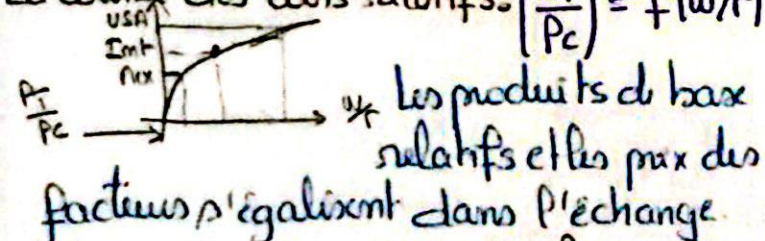 La courbe des coûts relatifs. (PI/Pc) = f(W/r)
USA
Int
Mex
PI/Pc
W/r
Les produits de base
relatifs et les prix des
facteurs s'égalisent dans l'échange